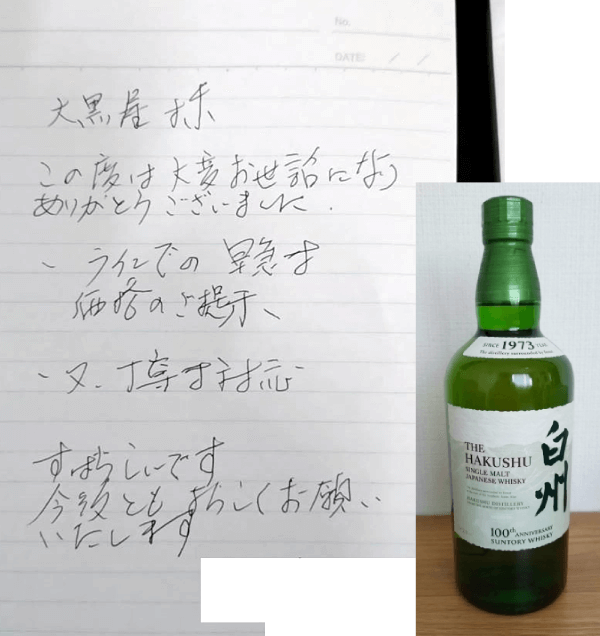 No.
DATE: / /
大黒屋 様
この度は大変お世話になり
ありがとうございました.
・ラインでの 早急な
価格のご提示、
・又、丁寧な対応
すばらしいです
今後とも よろしくお願い
いたします
SINCE 1973
THE
HAKUSHU
SINGLE MALT
JAPANESE WHISKY
白州
100th ANNIVERSARY
SUNTORY WHISKY